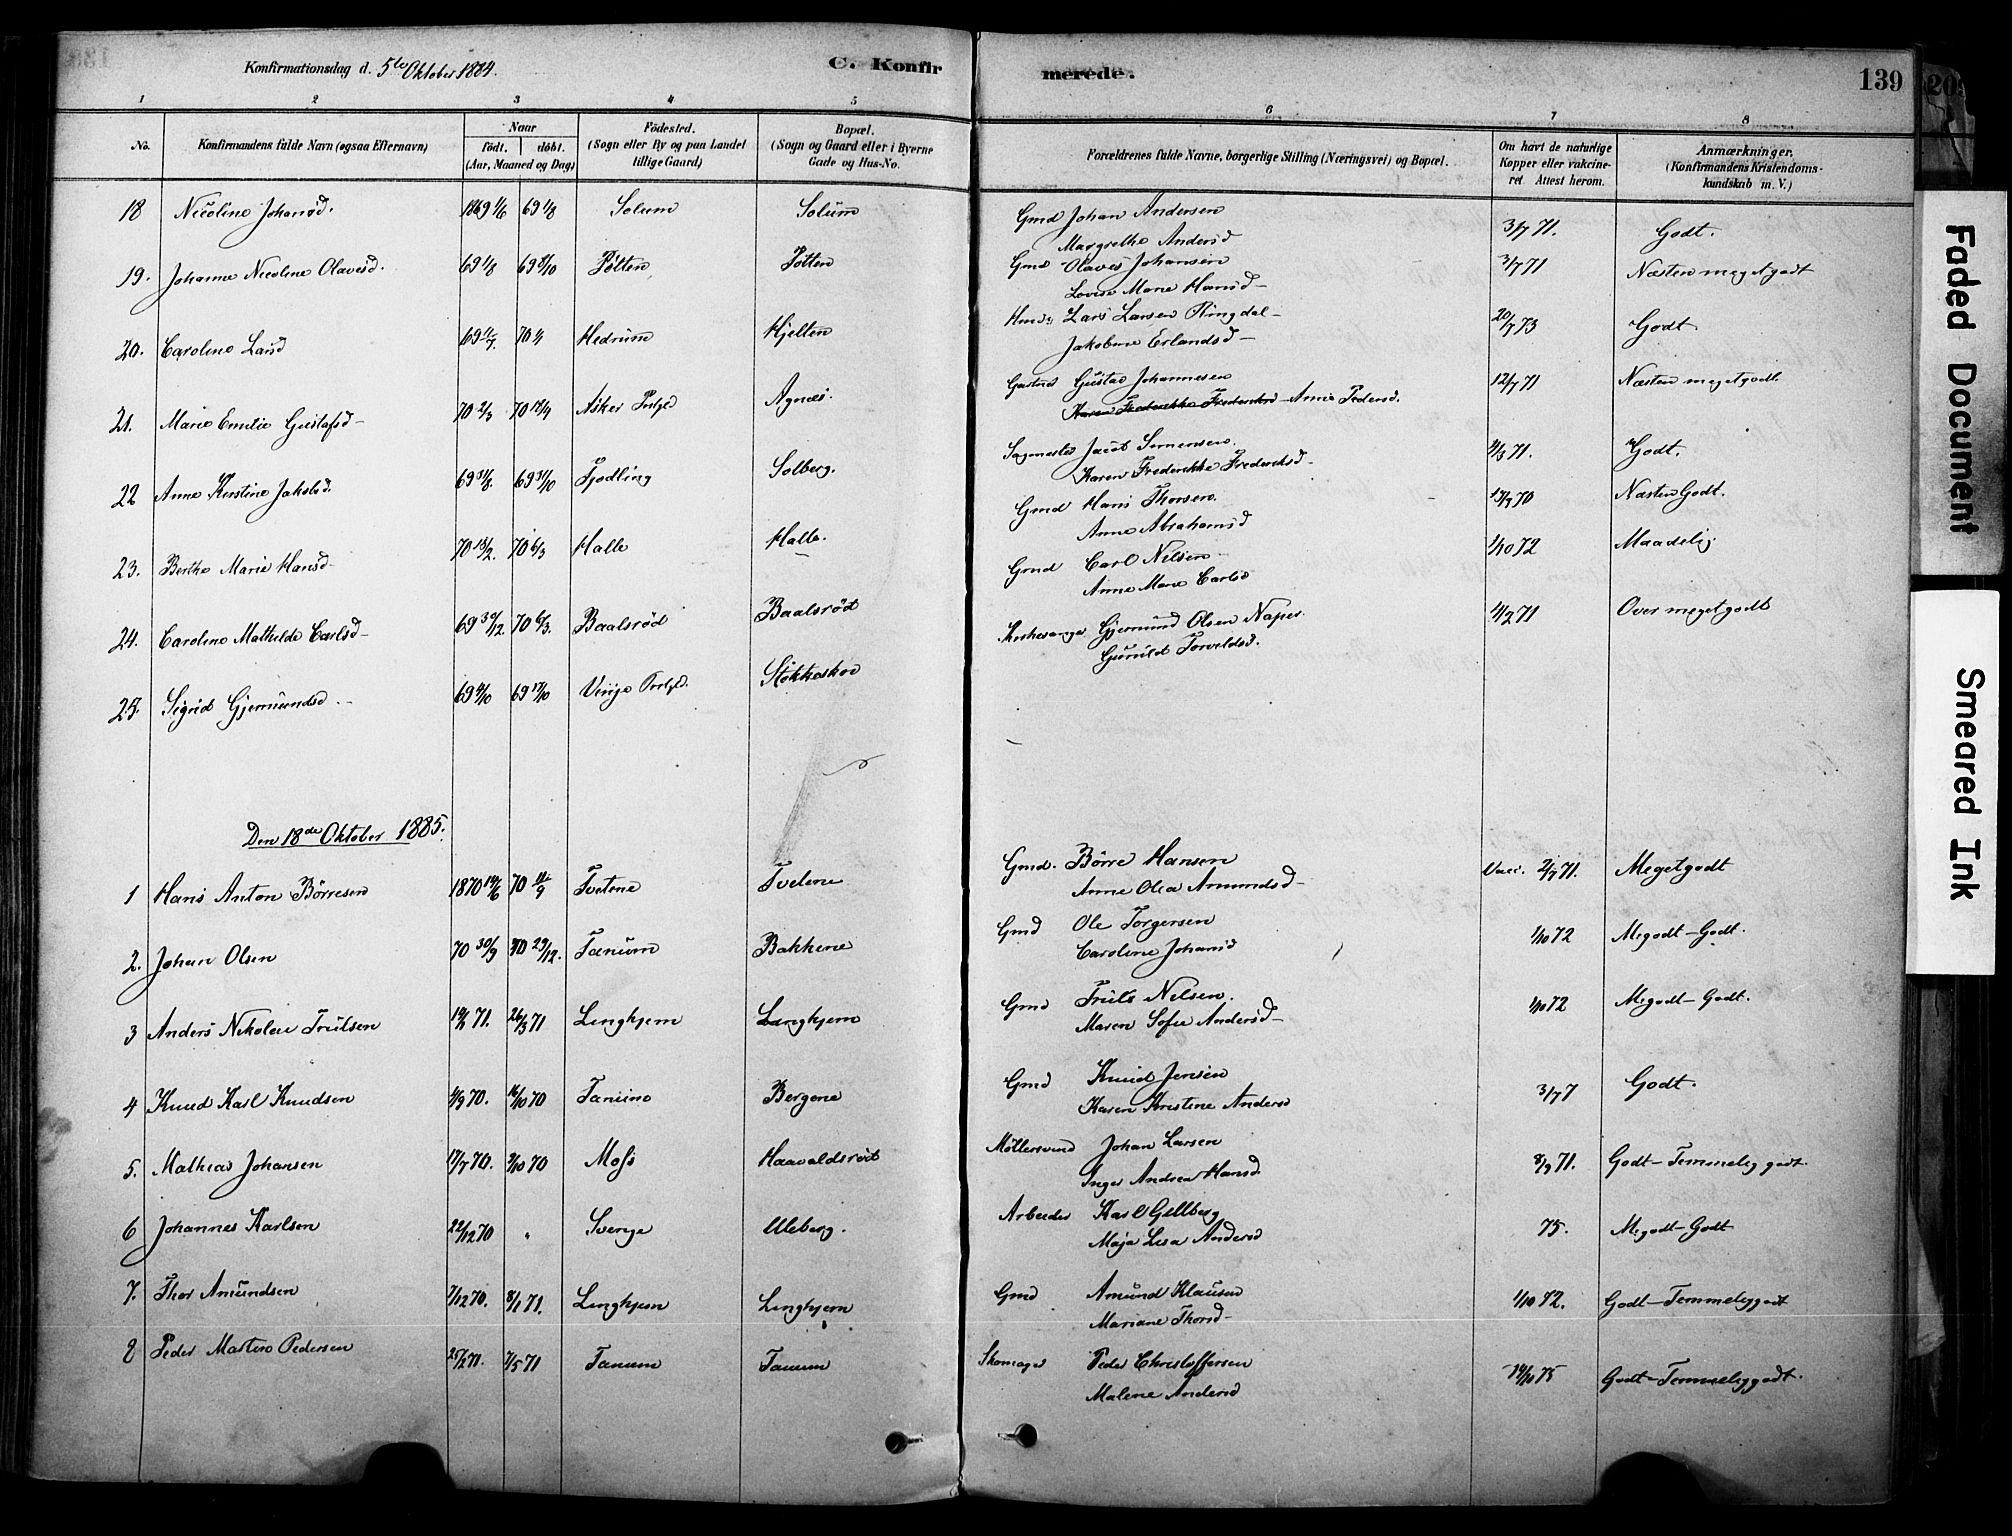 Konfirmationsdag d. 5te Oktober 1884.
C. Konfir
merede.
139
1 2 3 4 5 6 7 8
No.
Konfirmandens fulde Navn (ogsaa Efternavn)
Naar
födt. döbt.
(Aar, Maaned og Dag)
Födested.
(Sogn eller By og paa Landet
tillige Gaard)
Bopæl.
(Sogn og Gaard eller i Byerne
Gade og Hus-No.
Forældrenes fulde Navne, borgerlige Stilling (Næringsvei) og Bopæl.
Om havt de naturlige
Kopper eller vakcine-
ret. Attest herom.
Anmærkninger.
(Konfirmandens Kristendoms-
kundskab m. V.)
18 Nicoline Johansd. 1869 1/6 69 1/8 Solum Solum Gmd Johan Andersen 3/7 71. Godt.
Margrethe Andersd
19. Johanne Nicoline Olavesd. 69 1/8 69 3/10 Pølten Pölten Gmd Olaves Johansen 3/7 71 Næsten megetgodt
Lovise Marie Hansd
20. Caroline Larsd 69 11/7. 70 Hedrum Hjelten Lars Larsen Ringdal 20/7 73 Godt
Jakobine Erlandsd
21. Marie Emilie Gustafsd 70 2/3 70 18/4 Asker Prstgd Agnæs. Gartner Gustav Johannesen 12/7 71 Næsten megetgodt.
Karen Frederikke Frederiksd Anne Pedersd.
22 Anne Kirstine Jakobsd. 69 31/8. 69 31/10 Tjodling Solberg. Sagmester Jacob Simensen. 4/3 71. Godt.
Karen Frederikke Frederiksd
23. Berthe Marie Hansd 70 13/2. 70 6/3 Halle Halle. Gmd Hans Thorsen. 13/9 70 Næsten Godt.
Anne Abrahamsd
24. Caroline Mathilde Carlsd 69 30/12. 70 6/3. Baalsröd Baalsröd Gmd Carl Nilsen 1/10 72 Maadelig
Anne Marie Carlsd
25. Sigrid Gjermundsd 69 4/10 69 17/10 Vinje Prstgd. Stokkeskov Kirkesanger Gjermund Olsen Naper 4/2 71 Over megetgodt
Gunild Torvildsd.
Den 18de Oktober 1885.
1 Hans Anton Börresen 1870 14/6 70 11/9 Tvetene Tvetene Gmd. Börre Hansen Vacc. 2/9 71. Megetgodt
Anne Olea Amundsd
2. Johan Olsen 70 30/9 70 29/12. Tanum Bakkene Gmd Ole Torgersen 1/10 72 Megodt-Godt.
Caroline Johansd
3 Anders Nikolai Trulsen 71. 26/3 71 Lenghjem Langhjem Gmd Truls Nelsen. 1/10 72 Megodt-Godt.
Maren Sofie Andersd
4 Knud Karl Knudsen 4/9 70. 16/10 70 Tanum Bergene Gmd Knud Jensen 3/7 7 Godt.
Karen Kristine Andersd
5. Mathias Johansen 17/7 70. 2/10 70 Moss Haavaldsröd Möllersvend Johan Larsen 8/9 71. Godt-Temmelig godt.
Inger Andrea Hansd.
6 Johannes Karlsen 22/12 70 " Sverige Uleberg. Arbeider Karl Gellberg 75. Megodt-Godt
Maja Lisa Andersd
7. Thor Amundsen 7/12 70. 8/1 71. Lenghjem Lenghjem Gmd Amund Klausen 1/10 72. Godt-Temmeliggodt
Mariane Thorsd
8 Peder Martin Pedersen 25/2 71. 7/5 71 Tanum Tanum Skomager Peder Christoffersen 14/10 75 Godt-Temmeliggodt.
Malene Andersd
Faded Document
Smeared Ink